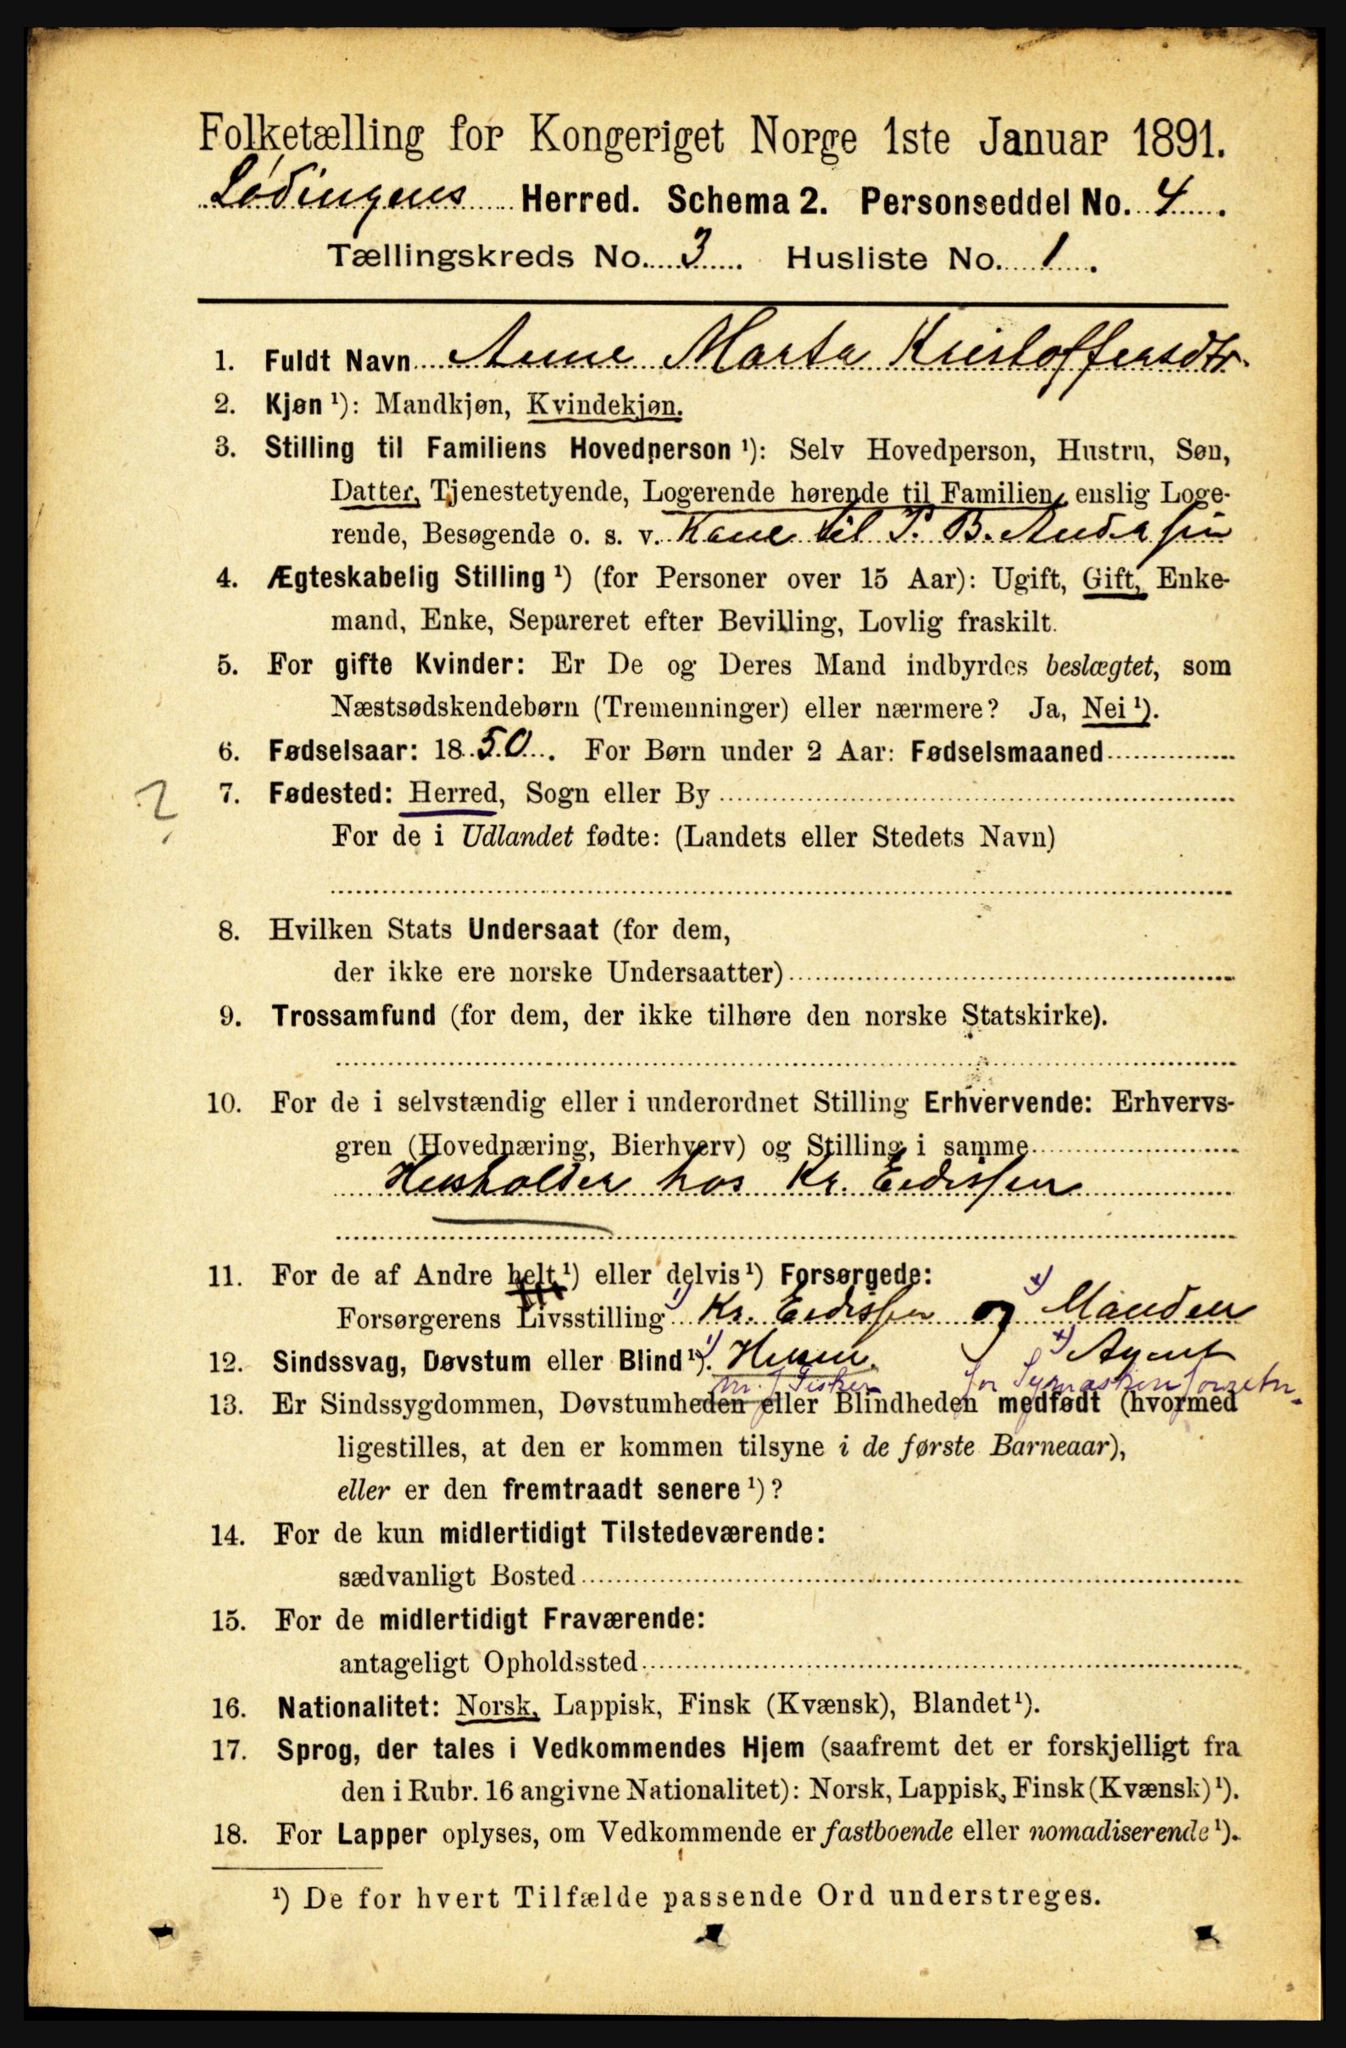 Folketælling for Kongeriget Norge 1ste Januar 1891.
Lødingens Herred. Schema 2. Personseddel No. 4.
Tællingskreds No. 3. Husliste No. 1.
1. Fuldt Navn Anne Marta Kristoffersdtr.
2. Kjøn ¹): Mandkjøn, Kvindekjøn.
3. Stilling til Familiens Hovedperson ¹): Selv Hovedperson, Hustru, Søn,
Datter, Tjenestetyende, Logerende hørende til Familien, enslig Loge-
rende, Besøgende o. s. v. Kone til P. B. Andersen
4. Ægteskabelig Stilling ¹) (for Personer over 15 Aar): Ugift, Gift, Enke-
mand, Enke, Separeret efter Bevilling, Lovlig fraskilt.
5. For gifte Kvinder: Er De og Deres Mand indbyrdes beslægtet, som
Næstsødskendebørn (Tremenninger) eller nærmere? Ja, Nei ¹).
6. Fødselsaar: 1850. For Børn under 2 Aar: Fødselsmaaned
? 7. Fødested: Herred, Sogn eller By
For de i Udlandet fødte: (Landets eller Stedets Navn)
8. Hvilken Stats Undersaat (for dem,
der ikke ere norske Undersaatter)
9. Trossamfund (for dem, der ikke tilhøre den norske Statskirke).
10. For de i selvstændig eller i underordnet Stilling Erhvervende: Erhvervs-
gren (Hovednæring, Bierhverv) og Stilling i samme
Husholder hos Kr. Edissen
11. For de af Andre helt ¹) eller delvis ¹) Forsørgede:
Forsørgerens Livsstilling Kr. Edissen og Manden
12. Sindssvag, Døvstum eller Blind ¹). Agent
Fisker for Symaskinforretn.
13. Er Sindssygdommen, Døvstumheden eller Blindheden medfødt (hvormed
ligestilles, at den er kommen tilsyne i de første Barneaar),
eller er den fremtraadt senere ¹)?
14. For de kun midlertidigt Tilstedeværende:
sædvanligt Bosted
15. For de midlertidigt Fraværende:
antageligt Opholdssted
16. Nationalitet: Norsk, Lappisk, Finsk (Kvænsk), Blandet ¹).
17. Sprog, der tales i Vedkommendes Hjem (saafremt det er forskjelligt fra
den i Rubr. 16 angivne Nationalitet): Norsk, Lappisk, Finsk (Kvænsk) ¹).
18. For Lapper oplyses, om Vedkommende er fastboende eller nomadiserende ¹).
¹) De for hvert Tilfælde passende Ord understreges.